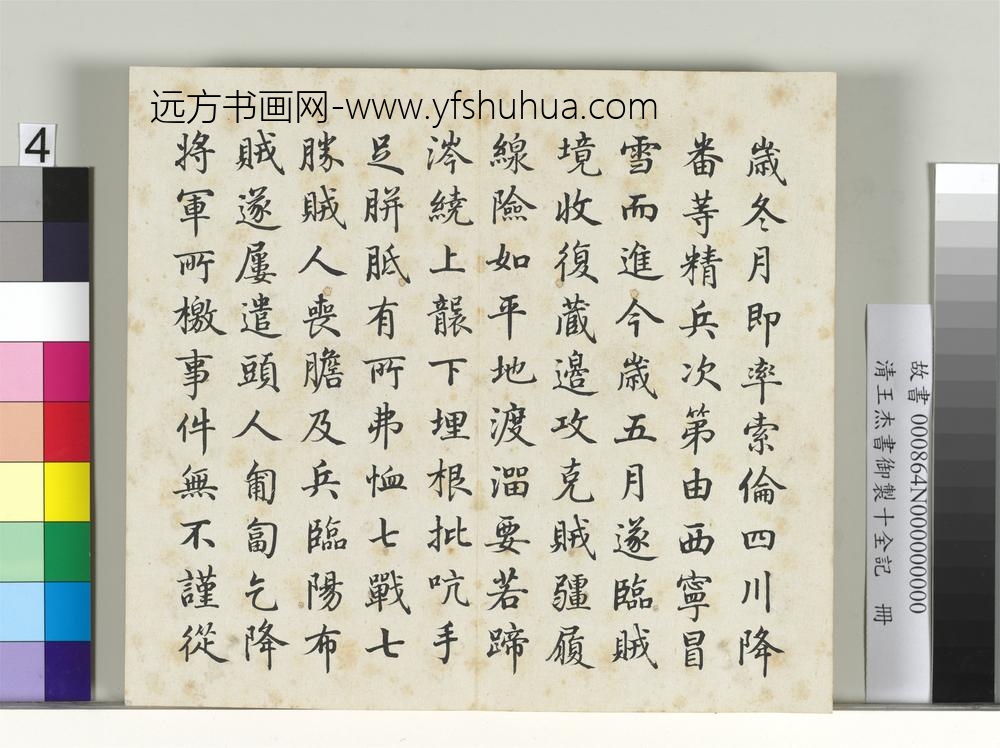 远方书画网-www.yfshuhua.com
歲冬月即率索倫四川降
番等精兵次第由西寧冒
雪而進今歲五月遂臨賊
境收復藏邊攻克賊疆履
線險如平地渡溜要若蹄
涔繞上襲下埋根批吭手
足胼胝有所弗恤七戰七
勝賊人喪膽及兵臨陽布
賊遂屢遣頭人匍匐乞降
將軍所檄事件無不謹從
4
故書 000864N000000000
清王杰書御製十全記 冊